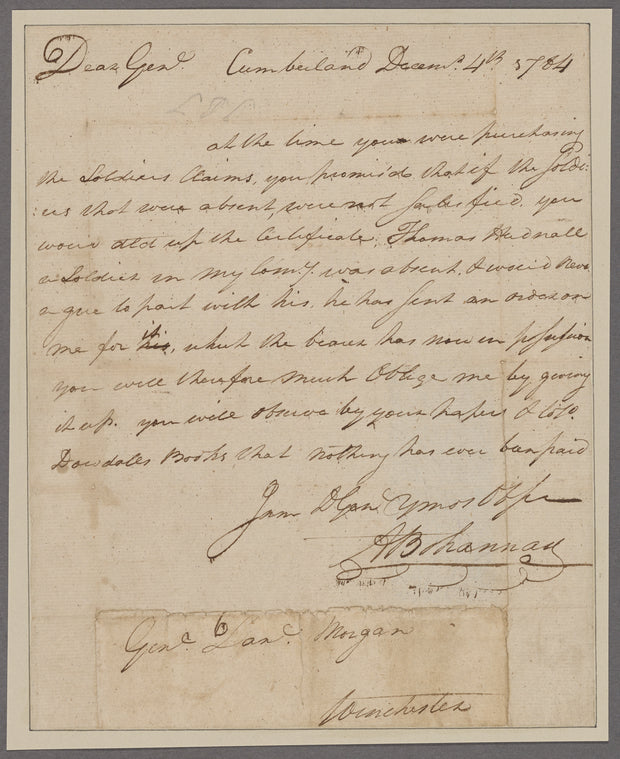 Dear Genl. Cumberland Decem. 4th 1784
at the time you were purchasing
the Soldiers Claims, you promisd that if the Soldi-
-ers that were absent, were not satisfied. you
woud give up the Certificate. Thomas Hudnall
a Soldier in my Comy. was absent & woud Never
agree to part with his, he has sent an order on
me for it, which the bearer has now in possession
you will therefore much Oblige me by giving
it up. you will observe by your papers & Colo.
Dowdalls Books that nothing has ever been paid
I am D Genl. Ymos Obt
A Bohannan
Genl. Danl. Morgan
Winchester